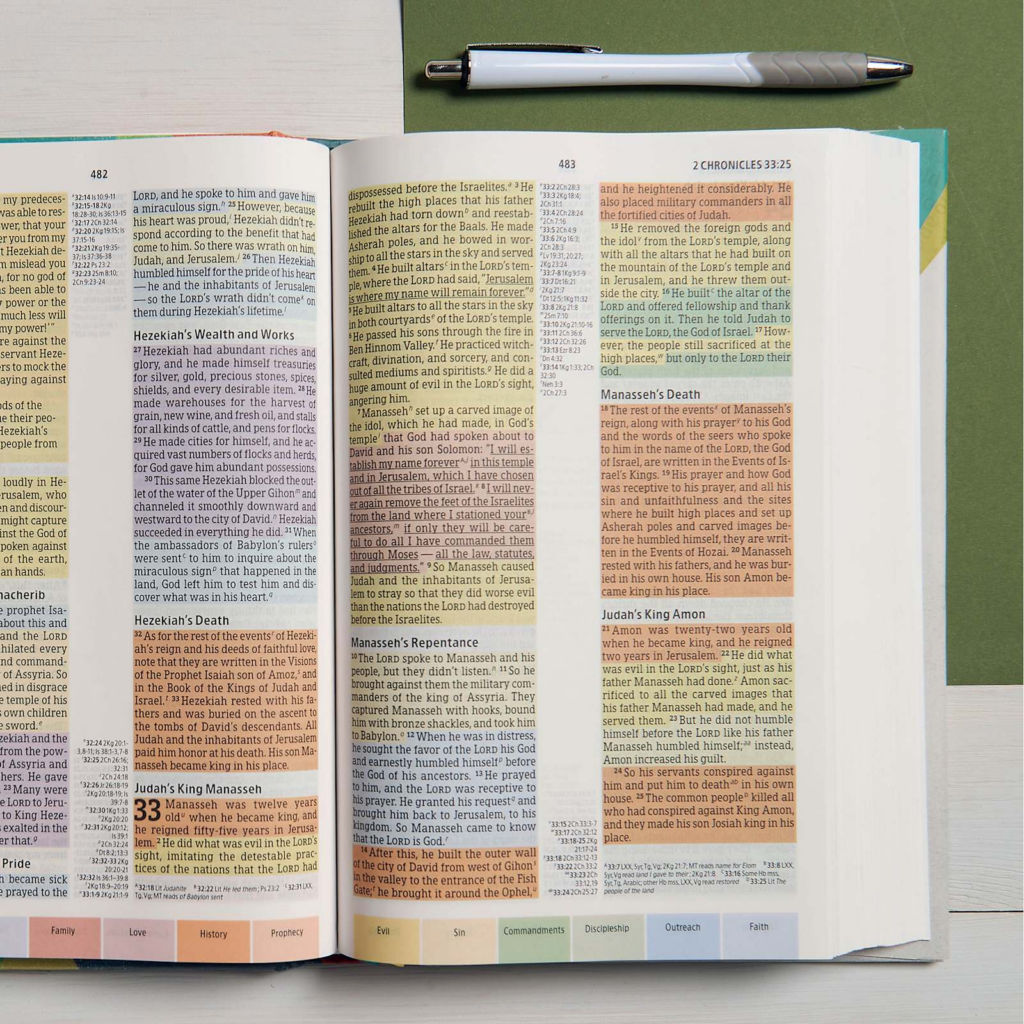 482
my predeces-
was able to res-
wer, that your
er you from my
t Hezekiah de-
mislead you
, for no god of
as been able to
y power or the
much less will
my power!'"
are against the
servant Heze-
ers to mock the
aying against
ods of the
e their peo-
Hezekiah's
people from
loudly in He-
erusalem, who
en and discour-
might capture
inst the God of
poken against
of the earth,
an hands.
nacherib
e prophet Isa-
about this and
and the LORD
ihilated every
nd command-
of Assyria. So
ned in disgrace
e temple of his
s own children
e sword.
zekiah and the
from the pow-
of Assyria and
hers. He gave
23 Many were
e LORD to Jeru-
to King Heze-
exalted in the
er that.
Pride
h became sick
e prayed to the
LORD, and he spoke to him and gave him
a miraculous sign. 25 However, because
his heart was proud, Hezekiah didn't re-
spond according to the benefit that had
come to him. So there was wrath on him,
Judah, and Jerusalem. 26 Then Hezekiah
humbled himself for the pride of his heart
—he and the inhabitants of Jerusalem
—so the LORD's wrath didn't come on
them during Hezekiah's lifetime.
Hezekiah's Wealth and Works
27 Hezekiah had abundant riches and
glory, and he made himself treasuries
for silver, gold, precious stones, spices,
shields, and every desirable item. 28 He
made warehouses for the harvest of
grain, new wine, and fresh oil, and stalls
for all kinds of cattle, and pens for flocks.
29 He made cities for himself, and he ac-
quired vast numbers of flocks and herds,
for God gave him abundant possessions.
30 This same Hezekiah blocked the out-
let of the water of the Upper Gihon and
channeled it smoothly downward and
westward to the city of David. Hezekiah
succeeded in everything he did. 31 When
the ambassadors of Babylon's rulers
were sent to him to inquire about the
miraculous sign that happened in the
land, God left him to test him and dis-
cover what was in his heart.
Hezekiah's Death
32 As for the rest of the events of Hezeki-
ah's reign and his deeds of faithful love,
note that they are written in the Visions
of the Prophet Isaiah son of Amoz, and
in the Book of the Kings of Judah and
Israel. 33 Hezekiah rested with his fa-
thers and was buried on the ascent to
the tombs of David's descendants. All
Judah and the inhabitants of Jerusalem
paid him honor at his death. His son Ma-
nasseh became king in his place.
Judah's King Manasseh
33 Manasseh was twelve years
old when he became king, and
he reigned fifty-five years in Jerusa-
lem. 2 He did what was evil in the LORD's
sight, imitating the detestable prac-
tices of the nations that the LORD had
32:18 Lit Judahite 32:22 Lit He led them; Ps 23:2 32:31 LXX,
Tg, Vg; MT reads of Babylon sent
Family
Love
History
Prophecy
483
2 CHRONICLES 33:25
dispossessed before the Israelites. 3 He
rebuilt the high places that his father
Hezekiah had torn down and reestab-
lished the altars for the Baals. He made
Asherah poles, and he bowed in wor-
ship to all the stars in the sky and served
them. 4 He built altars in the LORD's tem-
ple, where the LORD had said, "Jerusalem
is where my name will remain forever."
5 He built altars to all the stars in the sky
in both courtyards of the LORD's temple.
6 He passed his sons through the fire in
Ben Hinnom Valley. He practiced witch-
craft, divination, and sorcery, and con-
sulted mediums and spiritists. He did a
huge amount of evil in the LORD's sight,
angering him.
7 Manasseh set up a carved image of
the idol, which he had made, in God's
temple that God had spoken about to
David and his son Solomon: "I will es-
tablish my name forever in this temple
and in Jerusalem, which I have chosen
out of all the tribes of Israel. 8 I will nev-
er again remove the feet of the Israelites
from the land where I stationed your
ancestors, if only they will be care-
ful to do all I have commanded them
through Moses — all the law, statutes,
and judgments." 9 So Manasseh caused
Judah and the inhabitants of Jerusa-
lem to stray so that they did worse evil
than the nations the LORD had destroyed
before the Israelites.
Manasseh's Repentance
10 The LORD spoke to Manasseh and his
people, but they didn't listen. 11 So he
brought against them the military com-
manders of the king of Assyria. They
captured Manasseh with hooks, bound
him with bronze shackles, and took him
to Babylon. 12 When he was in distress,
he sought the favor of the LORD his God
and earnestly humbled himself before
the God of his ancestors. 13 He prayed
to him, and the LORD was receptive to
his prayer. He granted his request and
brought him back to Jerusalem, to his
kingdom. So Manasseh came to know
that the LORD is God.
14 After this, he built the outer wall
of the city of David from west of Gihon
in the valley to the entrance of the Fish
Gate; he brought it around the Ophel,
and he heightened it considerably. He
also placed military commanders in all
the fortified cities of Judah.
15 He removed the foreign gods and
the idol from the LORD's temple, along
with all the altars that he had built on
the mountain of the LORD's temple and
in Jerusalem, and he threw them out-
side the city. 16 He built the altar of the
LORD and offered fellowship and thank
offerings on it. Then he told Judah to
serve the LORD, the God of Israel. 17 How-
ever, the people still sacrificed at the
high places, but only to the LORD their
God.
Manasseh's Death
18 The rest of the events of Manasseh's
reign, along with his prayer to his God
and the words of the seers who spoke
to him in the name of the LORD, the God
of Israel, are written in the Events of Is-
rael's Kings. 19 His prayer and how God
was receptive to his prayer, and all his
sin and unfaithfulness and the sites
where he built high places and set up
Asherah poles and carved images be-
fore he humbled himself, they are writ-
ten in the Events of Hozai. 20 Manasseh
rested with his fathers, and he was bur-
ied in his own house. His son Amon be-
came king in his place.
Judah's King Amon
21 Amon was twenty-two years old
when he became king, and he reigned
two years in Jerusalem. 22 He did what
was evil in the LORD's sight, just as his
father Manasseh had done. Amon sac-
rificed to all the carved images that
his father Manasseh had made, and he
served them. 23 But he did not humble
himself before the LORD like his father
Manasseh humbled himself; instead,
Amon increased his guilt.
24 So his servants conspired against
him and put him to death in his own
house. 25 The common people killed all
who had conspired against King Amon,
and they made his son Josiah king in his
place.
33:7 LXX, Syr, Tg, Vg; 2Kg 21:7; MT reads name for Elom 33:8 LXX,
Syr, Vg read land I gave to their; 2Kg 21:8 33:16 Some Hb mss,
Syr, Tg, Arabic; other Hb mss, LXX, Vg read restored 33:25 Lit The
people of the land
Evil
Sin
Commandments
Discipleship
Outreach
Faith